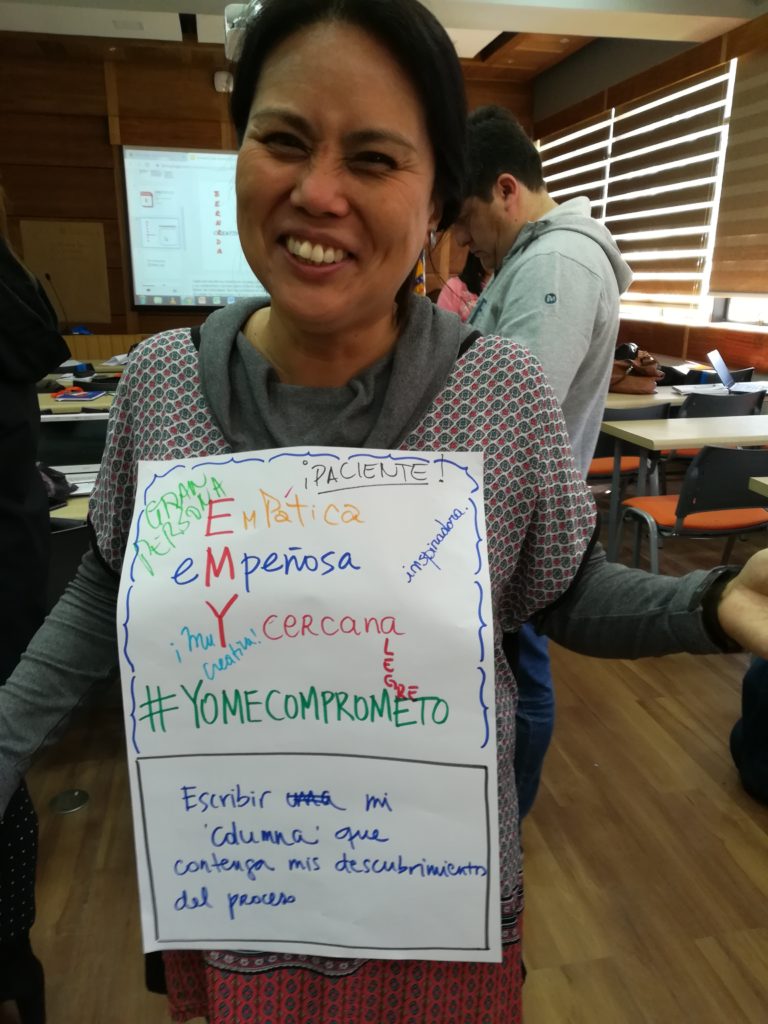 ¡PACIENTE!
GRAN
¡PERSONA
EMPática
inspiradora.
eMpeñosa
¡Muy cercana
creativa!
aLEGRE
#YOMECOMPROMETO
Escribir una mi
'columna' que
contenga mis descubrimientos
del proceso
BERNARDA